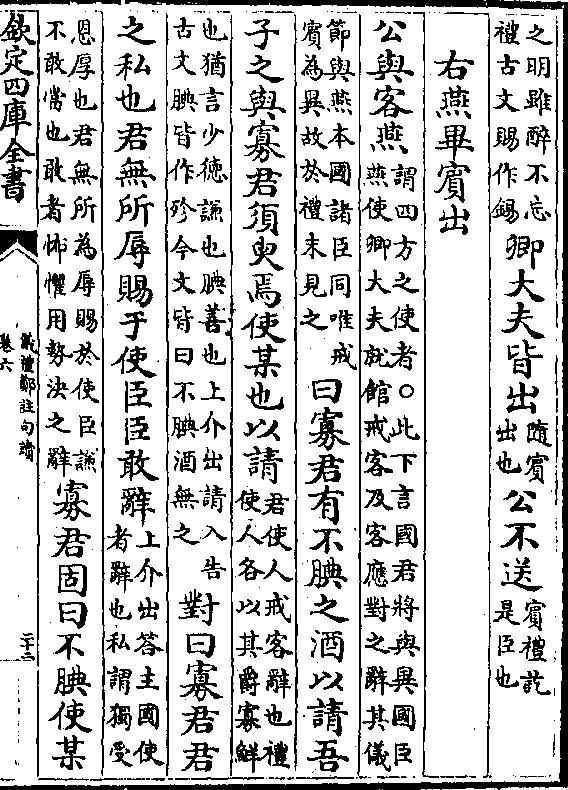 之明雖醉不忘
禮古文賜作錫
卿大夫皆出
隨賓
出也
公不送
賓禮訖
是臣也
右燕畢賓出
公與客燕
謂四方之使者○此下言國君將與異國臣
燕使卿大夫就館戒客及客應對之辭其儀
節與燕本國諸臣同唯戒
賓為異故於禮末見之
曰寡君有不腆之酒以請吾
子之與寡君須臾焉使某也以請
君使人戒客辭也禮
使人各以其爵寡鮮
也猶言少德謙也腆善也上介出請入告
古文腆皆作殄今文皆曰不腆酒無之
對曰寡君君
之私也君無所辱賜于使臣臣敢辭
上介出答主國使
者辭也私謂獨受
恩厚也君無所為辱賜於使臣謙
不敢當也敢者怖懼用勢決之辭
寡君固曰不腆使某
欽定四庫全書
儀禮鄭註句讀
卷六
二十二